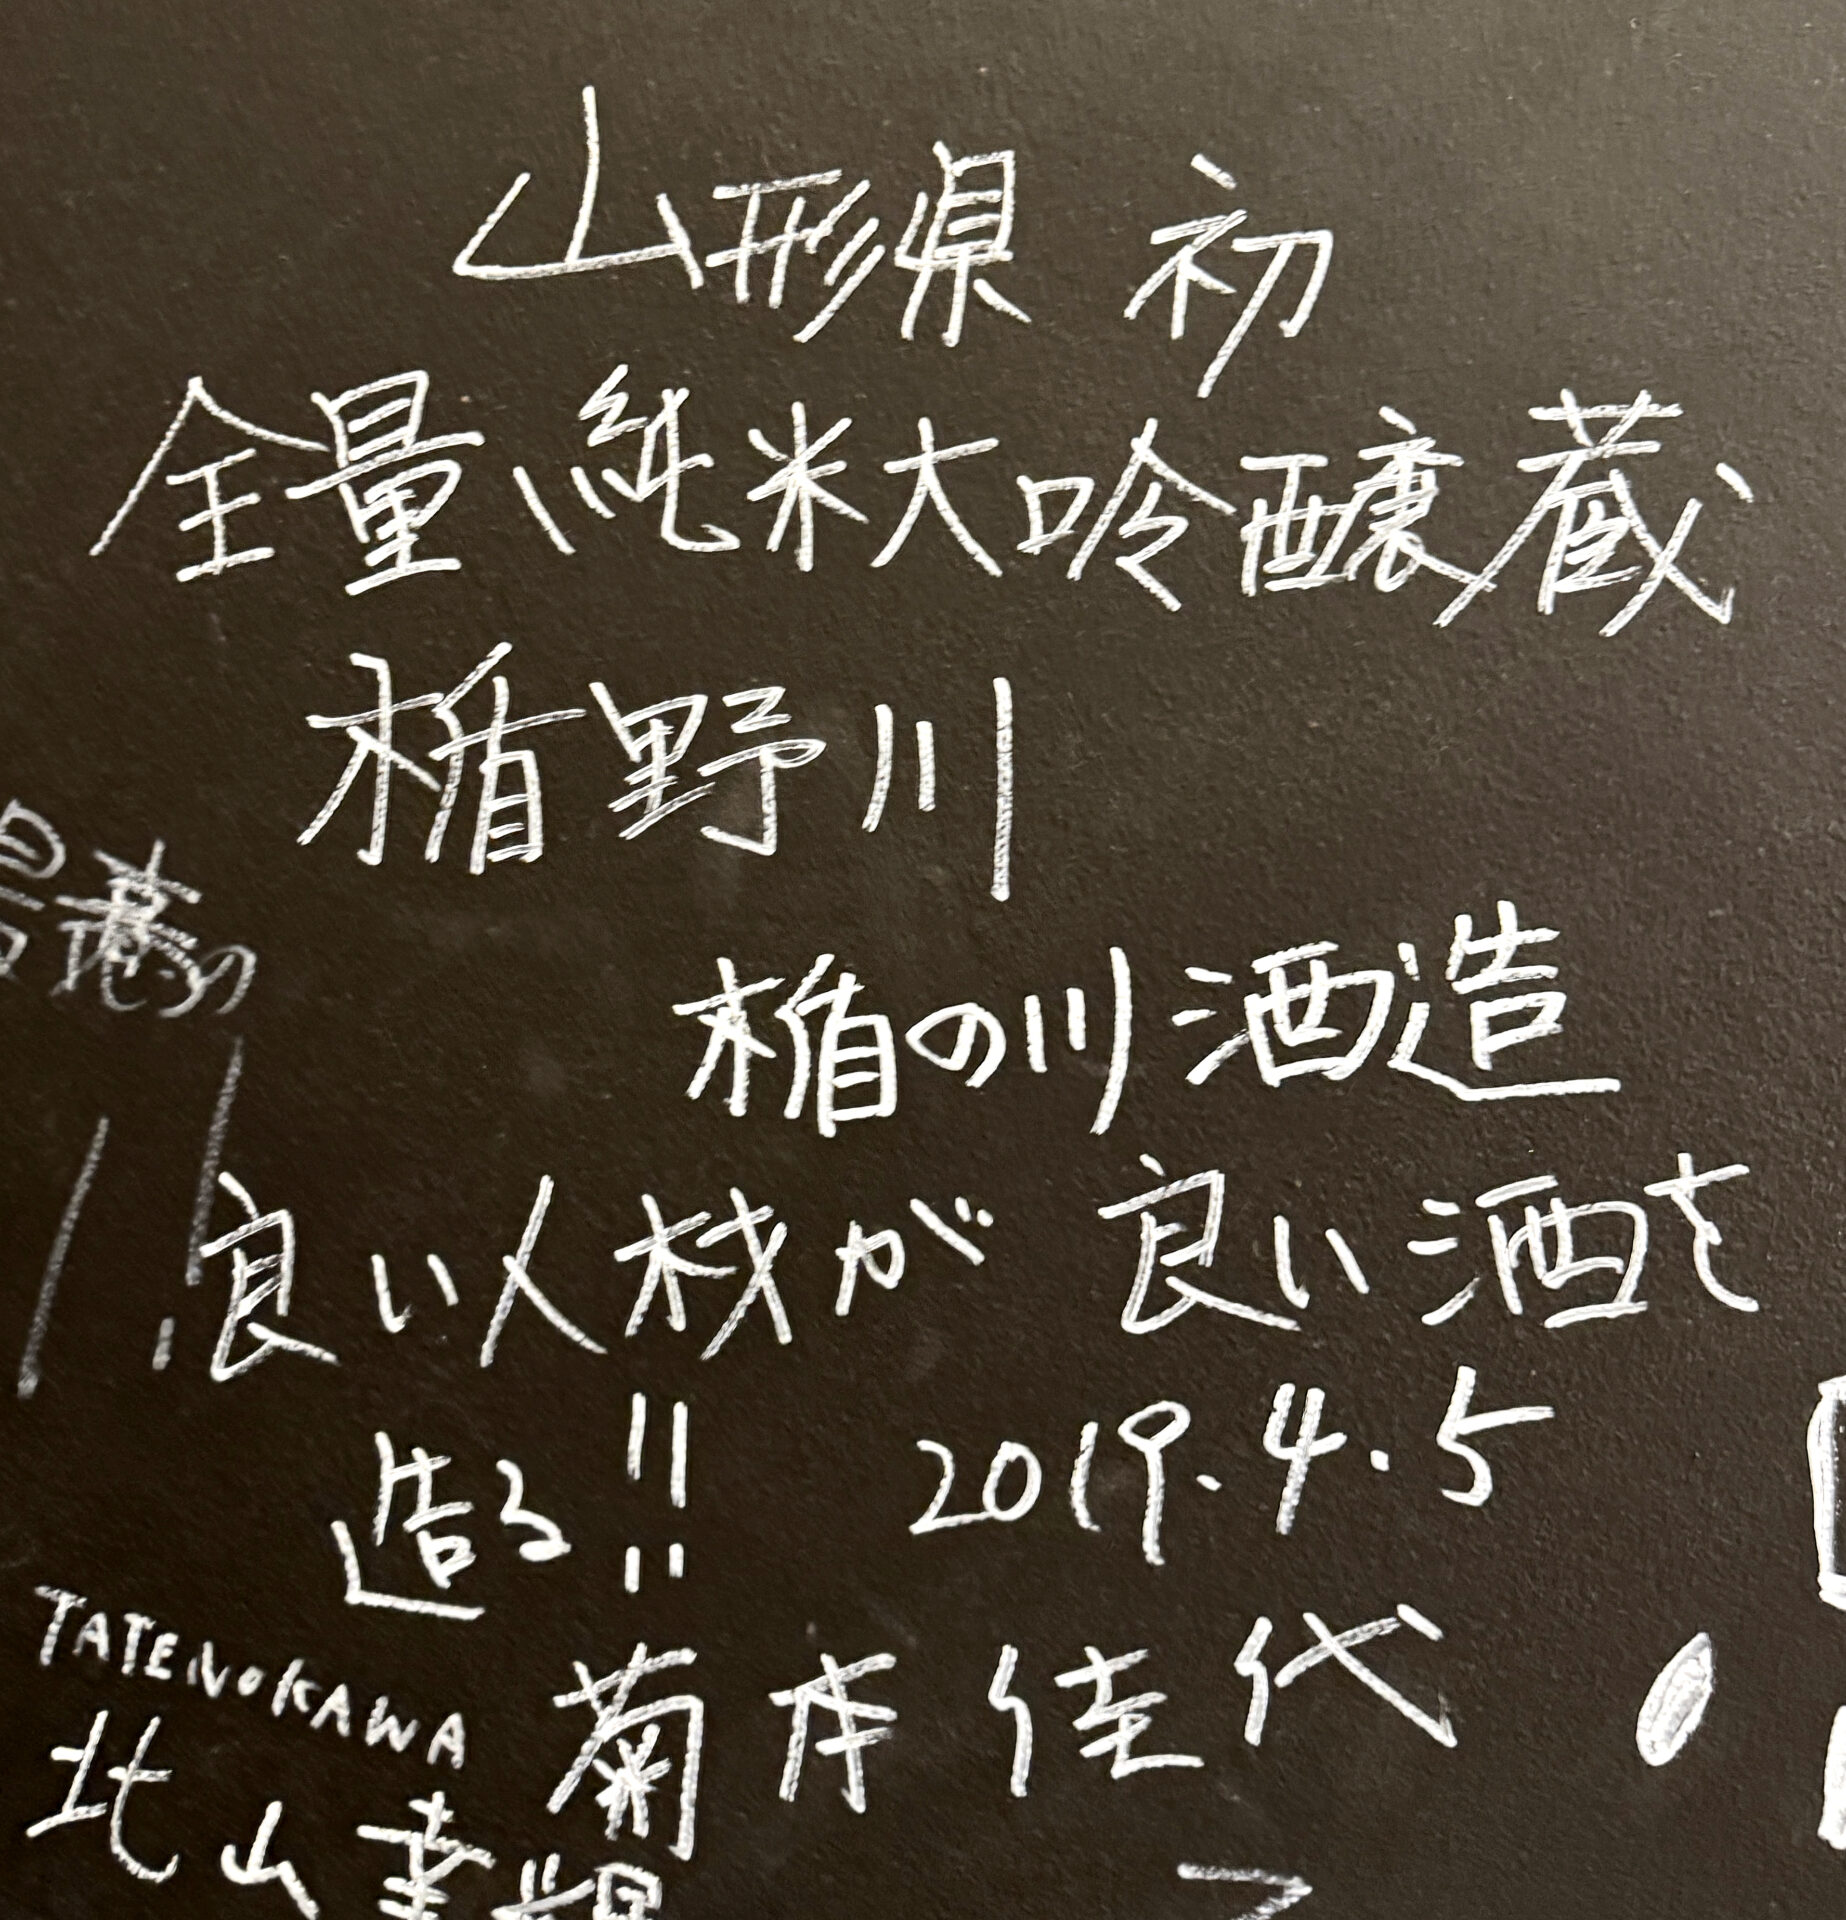 山形県 初
全量純米大吟醸蔵
楯野川
楯の川酒造
良い人材が 良い酒を
造る!! 2019.4.5
TATENOKAWA
菊本佳代
北山幸